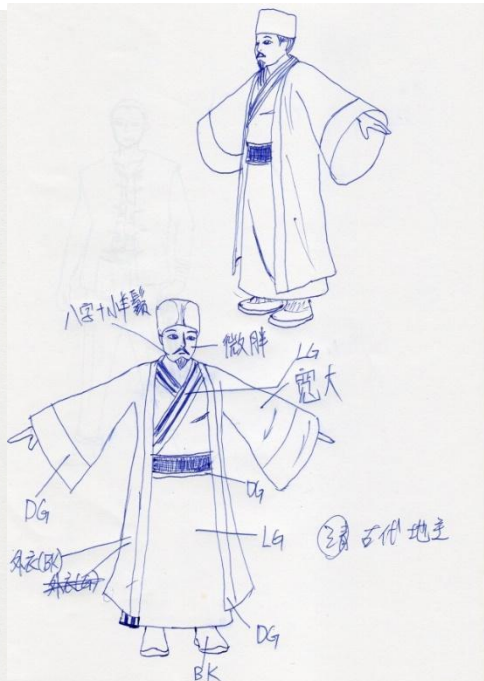 八字+小羊鬍
微胖
LG
寬大
DG
DG
LG
古代地主
外衣(BK)
DG
BK